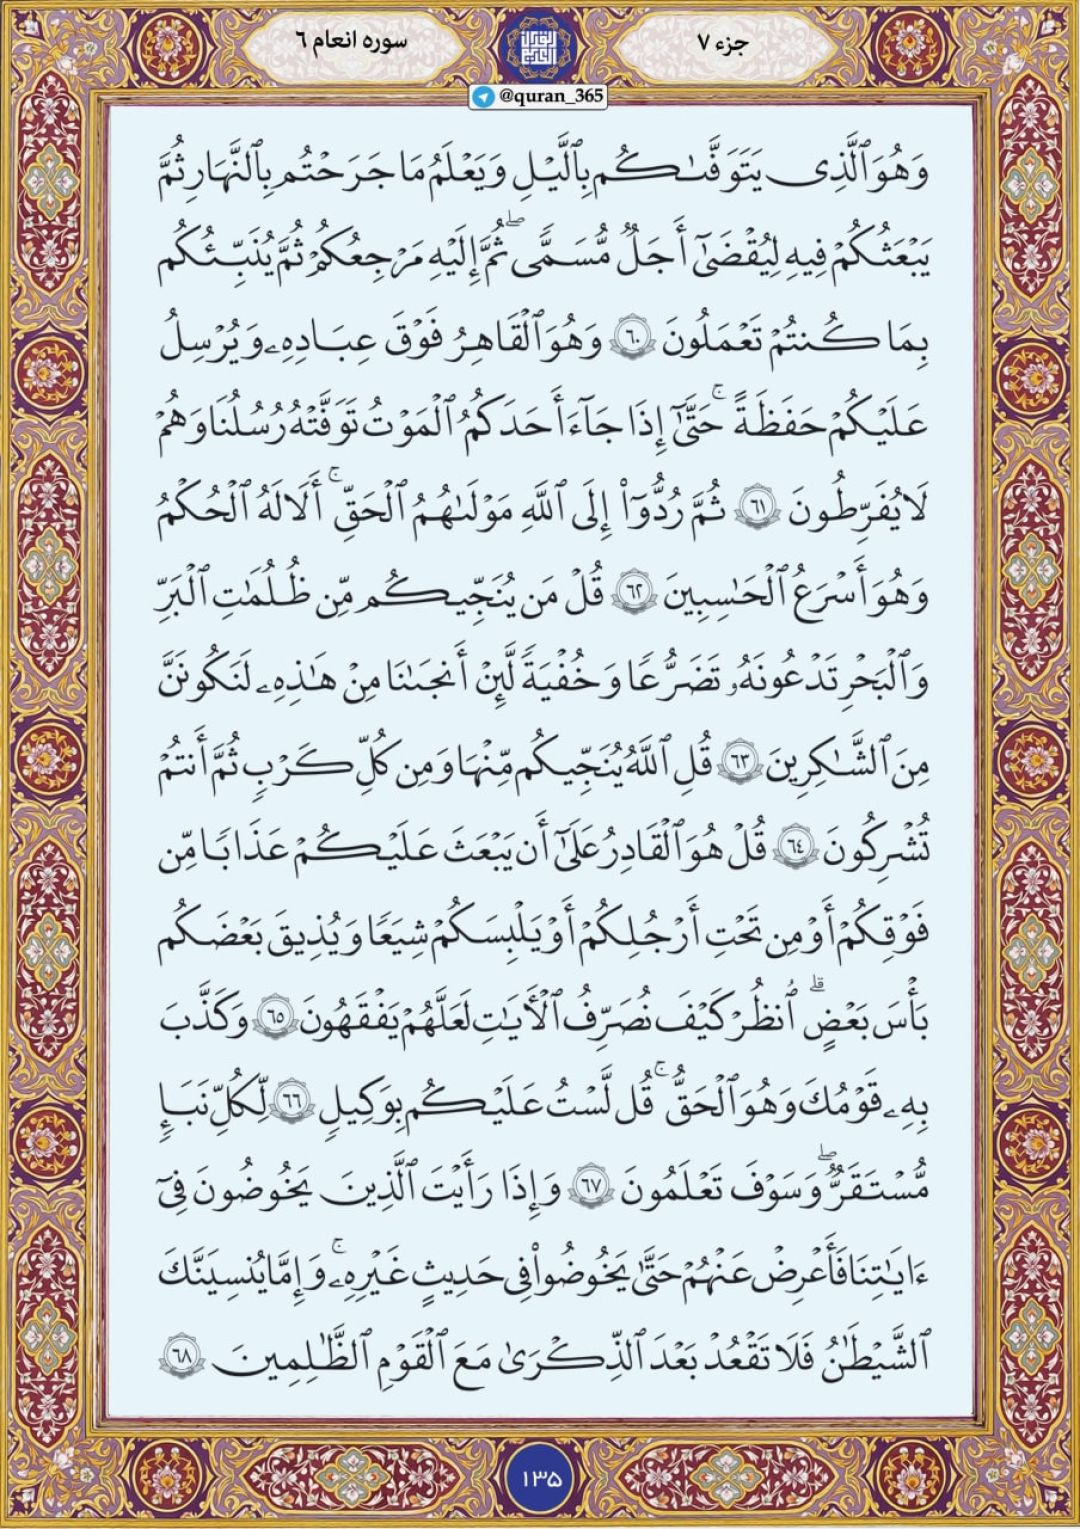 جزء ۷
سوره انعام ۶
@quran_365
وَهُوَ ٱلَّذِى يَتَوَفَّىٰكُم بِٱلَّيْلِ وَيَعْلَمُ مَا جَرَحْتُم بِٱلنَّهَارِ ثُمَّ
يَبْعَثُكُمْ فِيهِ لِيُقْضَىٰٓ أَجَلٌ مُّسَمًّى ۖ ثُمَّ إِلَيْهِ مَرْجِعُكُمْ ثُمَّ يُنَبِّئُكُم
بِمَا كُنتُمْ تَعْمَلُونَ ٦٠ وَهُوَ ٱلْقَاهِرُ فَوْقَ عِبَادِهِۦ وَيُرْسِلُ
عَلَيْكُمْ حَفَظَةً ۚ حَتَّىٰٓ إِذَا جَآءَ أَحَدَكُمُ ٱلْمَوْتُ تَوَفَّتْهُ رُسُلُنَا وَهُمْ
لَا يُفَرِّطُونَ ٦١ ثُمَّ رُدُّوٓا۟ إِلَى ٱللَّهِ مَوْلَىٰهُمُ ٱلْحَقِّ ۚ أَلَا لَهُ ٱلْحُكْمُ
وَهُوَ أَسْرَعُ ٱلْحَـٰسِبِينَ ٦٢ قُلْ مَن يُنَجِّيكُم مِّن ظُلُمَـٰتِ ٱلْبَرِّ
وَٱلْبَحْرِ تَدْعُونَهُۥ تَضَرُّعًا وَخُفْيَةً لَّئِنْ أَنجَىٰنَا مِنْ هَـٰذِهِۦ لَنَكُونَنَّ
مِنَ ٱلشَّـٰكِرِينَ ٦٣ قُلِ ٱللَّهُ يُنَجِّيكُم مِّنْهَا وَمِن كُلِّ كَرْبٍ ثُمَّ أَنتُمْ
تُشْرِكُونَ ٦٤ قُلْ هُوَ ٱلْقَادِرُ عَلَىٰٓ أَن يَبْعَثَ عَلَيْكُمْ عَذَابًا مِّن
فَوْقِكُمْ أَوْ مِن تَحْتِ أَرْجُلِكُمْ أَوْ يَلْبِسَكُمْ شِيَعًا وَيُذِيقَ بَعْضَكُم
بَأْسَ بَعْضٍ ۗ ٱنظُرْ كَيْفَ نُصَرِّفُ ٱلْـَٔايَـٰتِ لَعَلَّهُمْ يَفْقَهُونَ ٦٥ وَكَذَّبَ
بِهِۦ قَوْمُكَ وَهُوَ ٱلْحَقُّ ۚ قُل لَّسْتُ عَلَيْكُم بِوَكِيلٍ ٦٦ لِّكُلِّ نَبَإٍ
مُّسْتَقَرٌّ ۖ وَسَوْفَ تَعْلَمُونَ ٦٧ وَإِذَا رَأَيْتَ ٱلَّذِينَ يَخُوضُونَ فِىٓ
ءَايَـٰتِنَا فَأَعْرِضْ عَنْهُمْ حَتَّىٰ يَخُوضُوا۟ فِى حَدِيثٍ غَيْرِهِۦ ۚ وَإِمَّا يُنسِيَنَّكَ
ٱلشَّيْطَـٰنُ فَلَا تَقْعُدْ بَعْدَ ٱلذِّكْرَىٰ مَعَ ٱلْقَوْمِ ٱلظَّـٰلِمِينَ ٦٨
۱۳۵